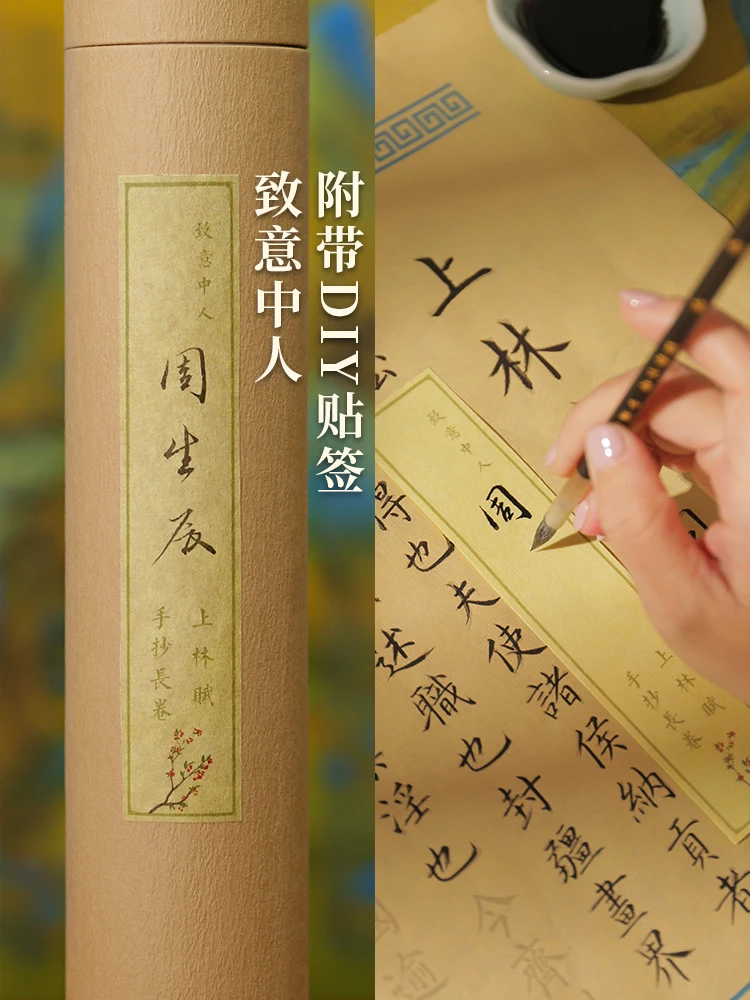 附带DIY贴签
致意中人
致意中人
周生辰
上林賦
手抄長卷
上林
致意中人
周
上林賦
手抄長卷
得也夫使諸侯納貢者
述職也封疆畫界
淫也今齊
逾